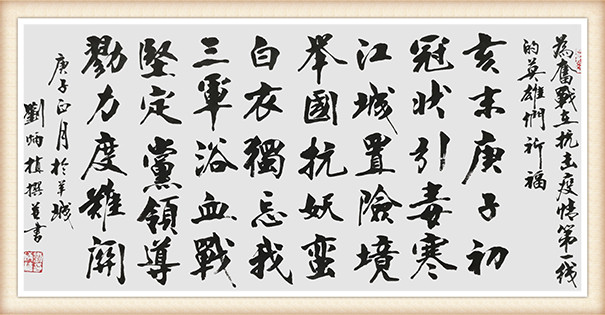 為奮戰在抗击疫情第一线
的英雄們祈福
亥末庚子初
冠状引毒寒
江城置險境
举國抗妖蛮
白衣獨忘我
三軍浴血戰
堅定黨領導
勠力度難関
庚子正月於羊城
劉炳撰並書